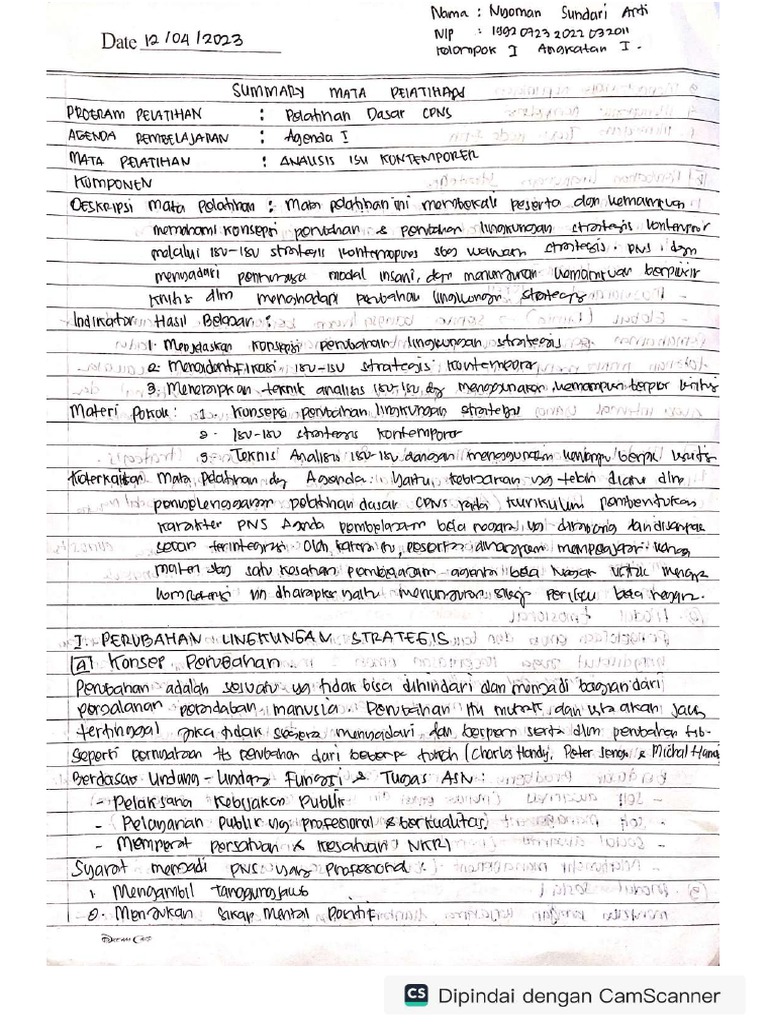 Nama : Nyoman Sundari Arti
NIP : 199209232022032011
Kelompok I Angkatan I.
Date 12/04/2023
SUMMARY MATA PELATIHAN
PROGRAM PELATIHAN : Pelatihan Dasar CPNS
AGENDA PEMBELAJARAN : Agenda I
MATA PELATIHAN : ANALISIS ISU KONTEMPORER
KOMPONEN
Deskripsi Mata Pelatihan : Mata pelatihan ini membekali peserta dgn kemampuan
memahami konsepsi perubahan & perubahan lingkungan strategis kontempor
melalui isu-isu strategis kontemporer sbg wawasan strategis PNS dgn
menyadari pentingnya modal insani, dgn menunjukan kemampuan berpikir
kritis dlm menghadapi perubahan lingkungan strategis
Indikator Hasil Belajar :
1. Menjelaskan konsepsi perubahan lingkungan strategis
2. Mengidentifikasi isu-isu strategis kontemporer
3. Menerapkan teknik analisis isu-isu dg menggunakan kemampuan berpikir kritis
Materi Pokok : 1. Konsepsi perubahan lingkungan strategis
2. Isu-isu strategis kontemporer
3. Teknis Analisis isu-isu dengan menggunakan berpikir kritis
Keterkaitan Mata Pelatihan dg Agenda : Yaitu, kebijakan yg telah diatur dlm
penyelenggaraan pelatihan dasar CPNS pada kurikulum pembentukan
karakter PNS Agenda pembelajaran bela negara yg dirancang dan disiapkan
secara terintegrasi. Oleh karena itu, peserta mempelajari
materi sbg satu kesatuan pembelajaran agenda bela negara untuk
kompetensi yg diharapkan yaitu menunjukan sikap perilaku bela negara.
I. PERUBAHAN LINGKUNGAN STRATEGIS
A Konsep Perubahan
Perubahan adalah sesuatu yg tidak bisa dihindari dan menjadi bagian dari
perjalanan peradaban manusia. Perubahan itu mutlak dan kita akan jauh
tertinggal jika tidak segera menyadari dan berperan serta dlm perubahan tsb.
Seperti pernyataan ttg perubahan dari beberapa tokoh (Charles Handy, Peter Senge & Michal
Berdasar Undang-Undang Fungsi & Tugas ASN :
- Pelaksana Kebijakan Publik
- Pelayanan Publik yg profesional & berkualitas
- Memperat persatuan & kesatuan NKRI
Syarat menjadi PNS yang Profesional :
1. Mengambil tanggungjawab
2. Menunjukan Sikap Mental Positif
CS Dipindai dengan CamScanner